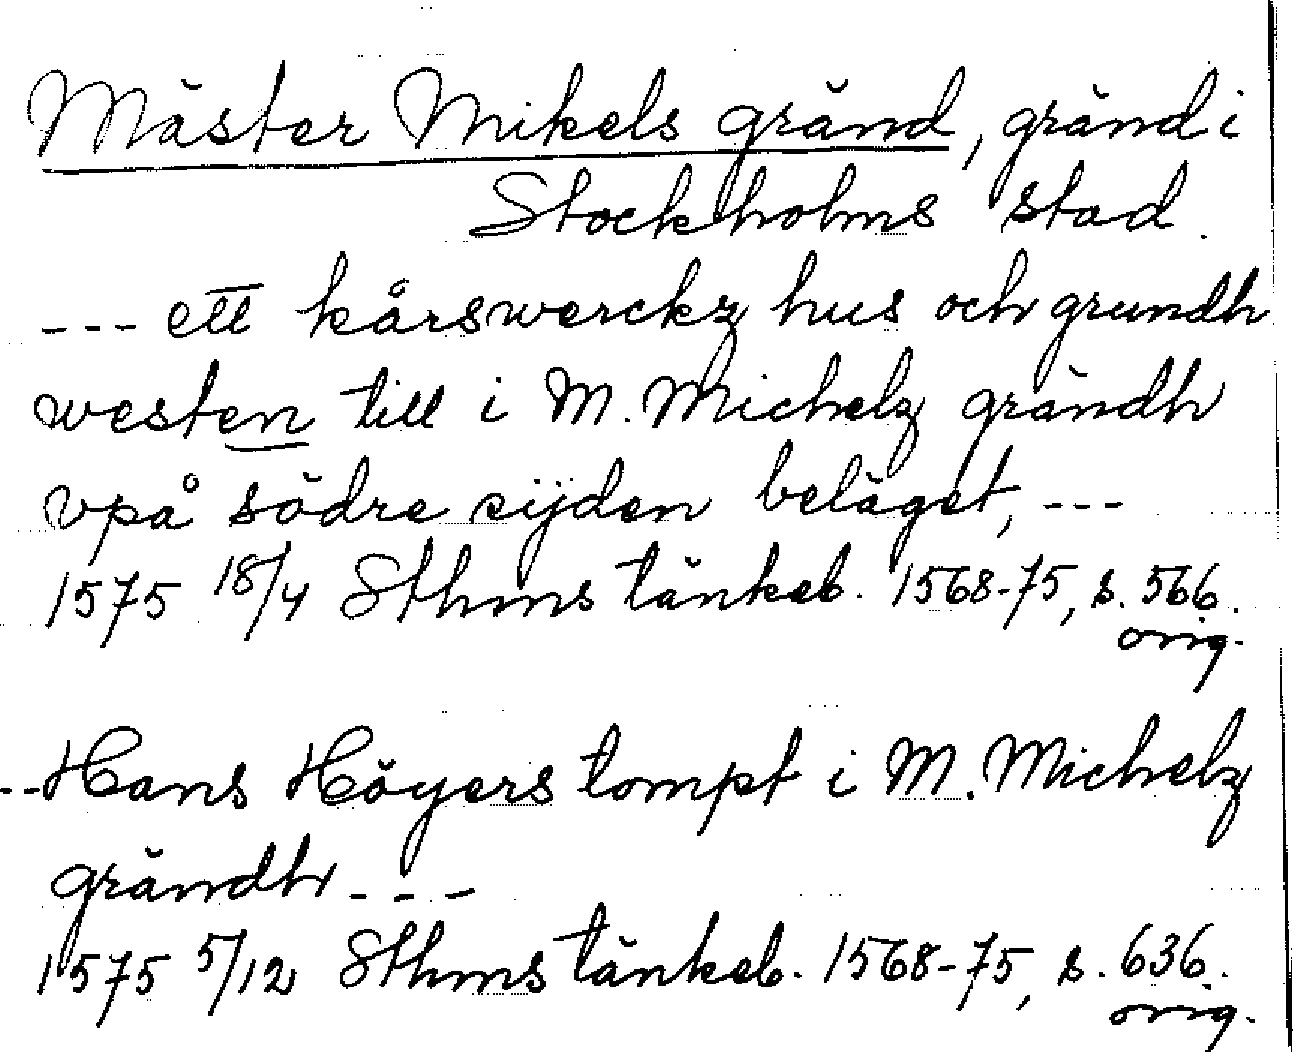 Mäster Mikels gränd, gränd i
Stockholms stad.
--- ett kårswerckz hus och grundh
westen till i M. Michelz gråndh
vpå södre sijden beläget, ---
1575 18/4 Sthms tänkeb. 1568-75, s. 566.
orig.
--Hans Höyers tompt i M. Michelz
grändh---
1575 5/12 Sthms tänkeb. 1568-75, s. 636.
orig.